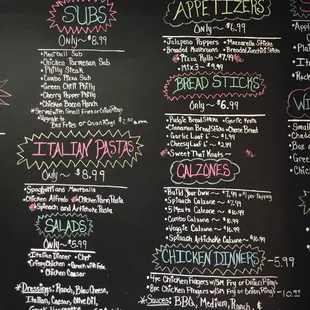 SUBS
Only~ $8.99
Meatball Sub
Chicken Parmesan Sub
Philly Steak
Combo Pizza Sub
Green Chili Philly
Cherry Pepper Philly
Chicken Bacon Ranch
Served with Small Fries or Onion Rings
Upgrade to
Box Fries or Onion Rings $2.50 more
ITALIAN PASTAS
Only~ $8.99
Spaghetti and Meatballs
Chicken Alfredo Chicken Parm Pasta
Spinach and Artichoke Pasta
SALADS
Only~ $5.99
Italian Dinner • Chef
Crispy Chicken • Greek with Feta
Chicken Caesar
Dressings: Ranch, Bleu Cheese,
Italian, Caesar, Olive Oil,
APPETIZERS
Only~ $6.99
Jalapeno Poppers • Mozzarella Sticks
Breaded Mushrooms • Breaded Zucchini Sticks
Pizza Rolls ~ $7.99
Mix 3 ~ $9.99
BREAD STICKS
Only~ $6.99
Pudgie Bread Sticks • Garlic Knots
Cinnamon Bread Sticks • Cheese Bread
Garlic Loaf
Cheesy Loaf
Sweet Thai Knots
CALZONES
Build Your Own ~ $7.99 + $1 per topping
Spinach Calzone ~ $7.99
5 Meats Calzone ~ $10.99
Combo Calzone ~ $10.99
Veggie Calzone ~ $10.99
Spinach Artichoke Calzone ~ $10.99
CHICKEN DINNERS -5.99
4pc Chicken Fingers w/SM Fry or Onion Rings
8pc Chicken Fingers w/SM Fry or Onion Rings -10.99
Sauces: BBQ, Medium, Ranch, &